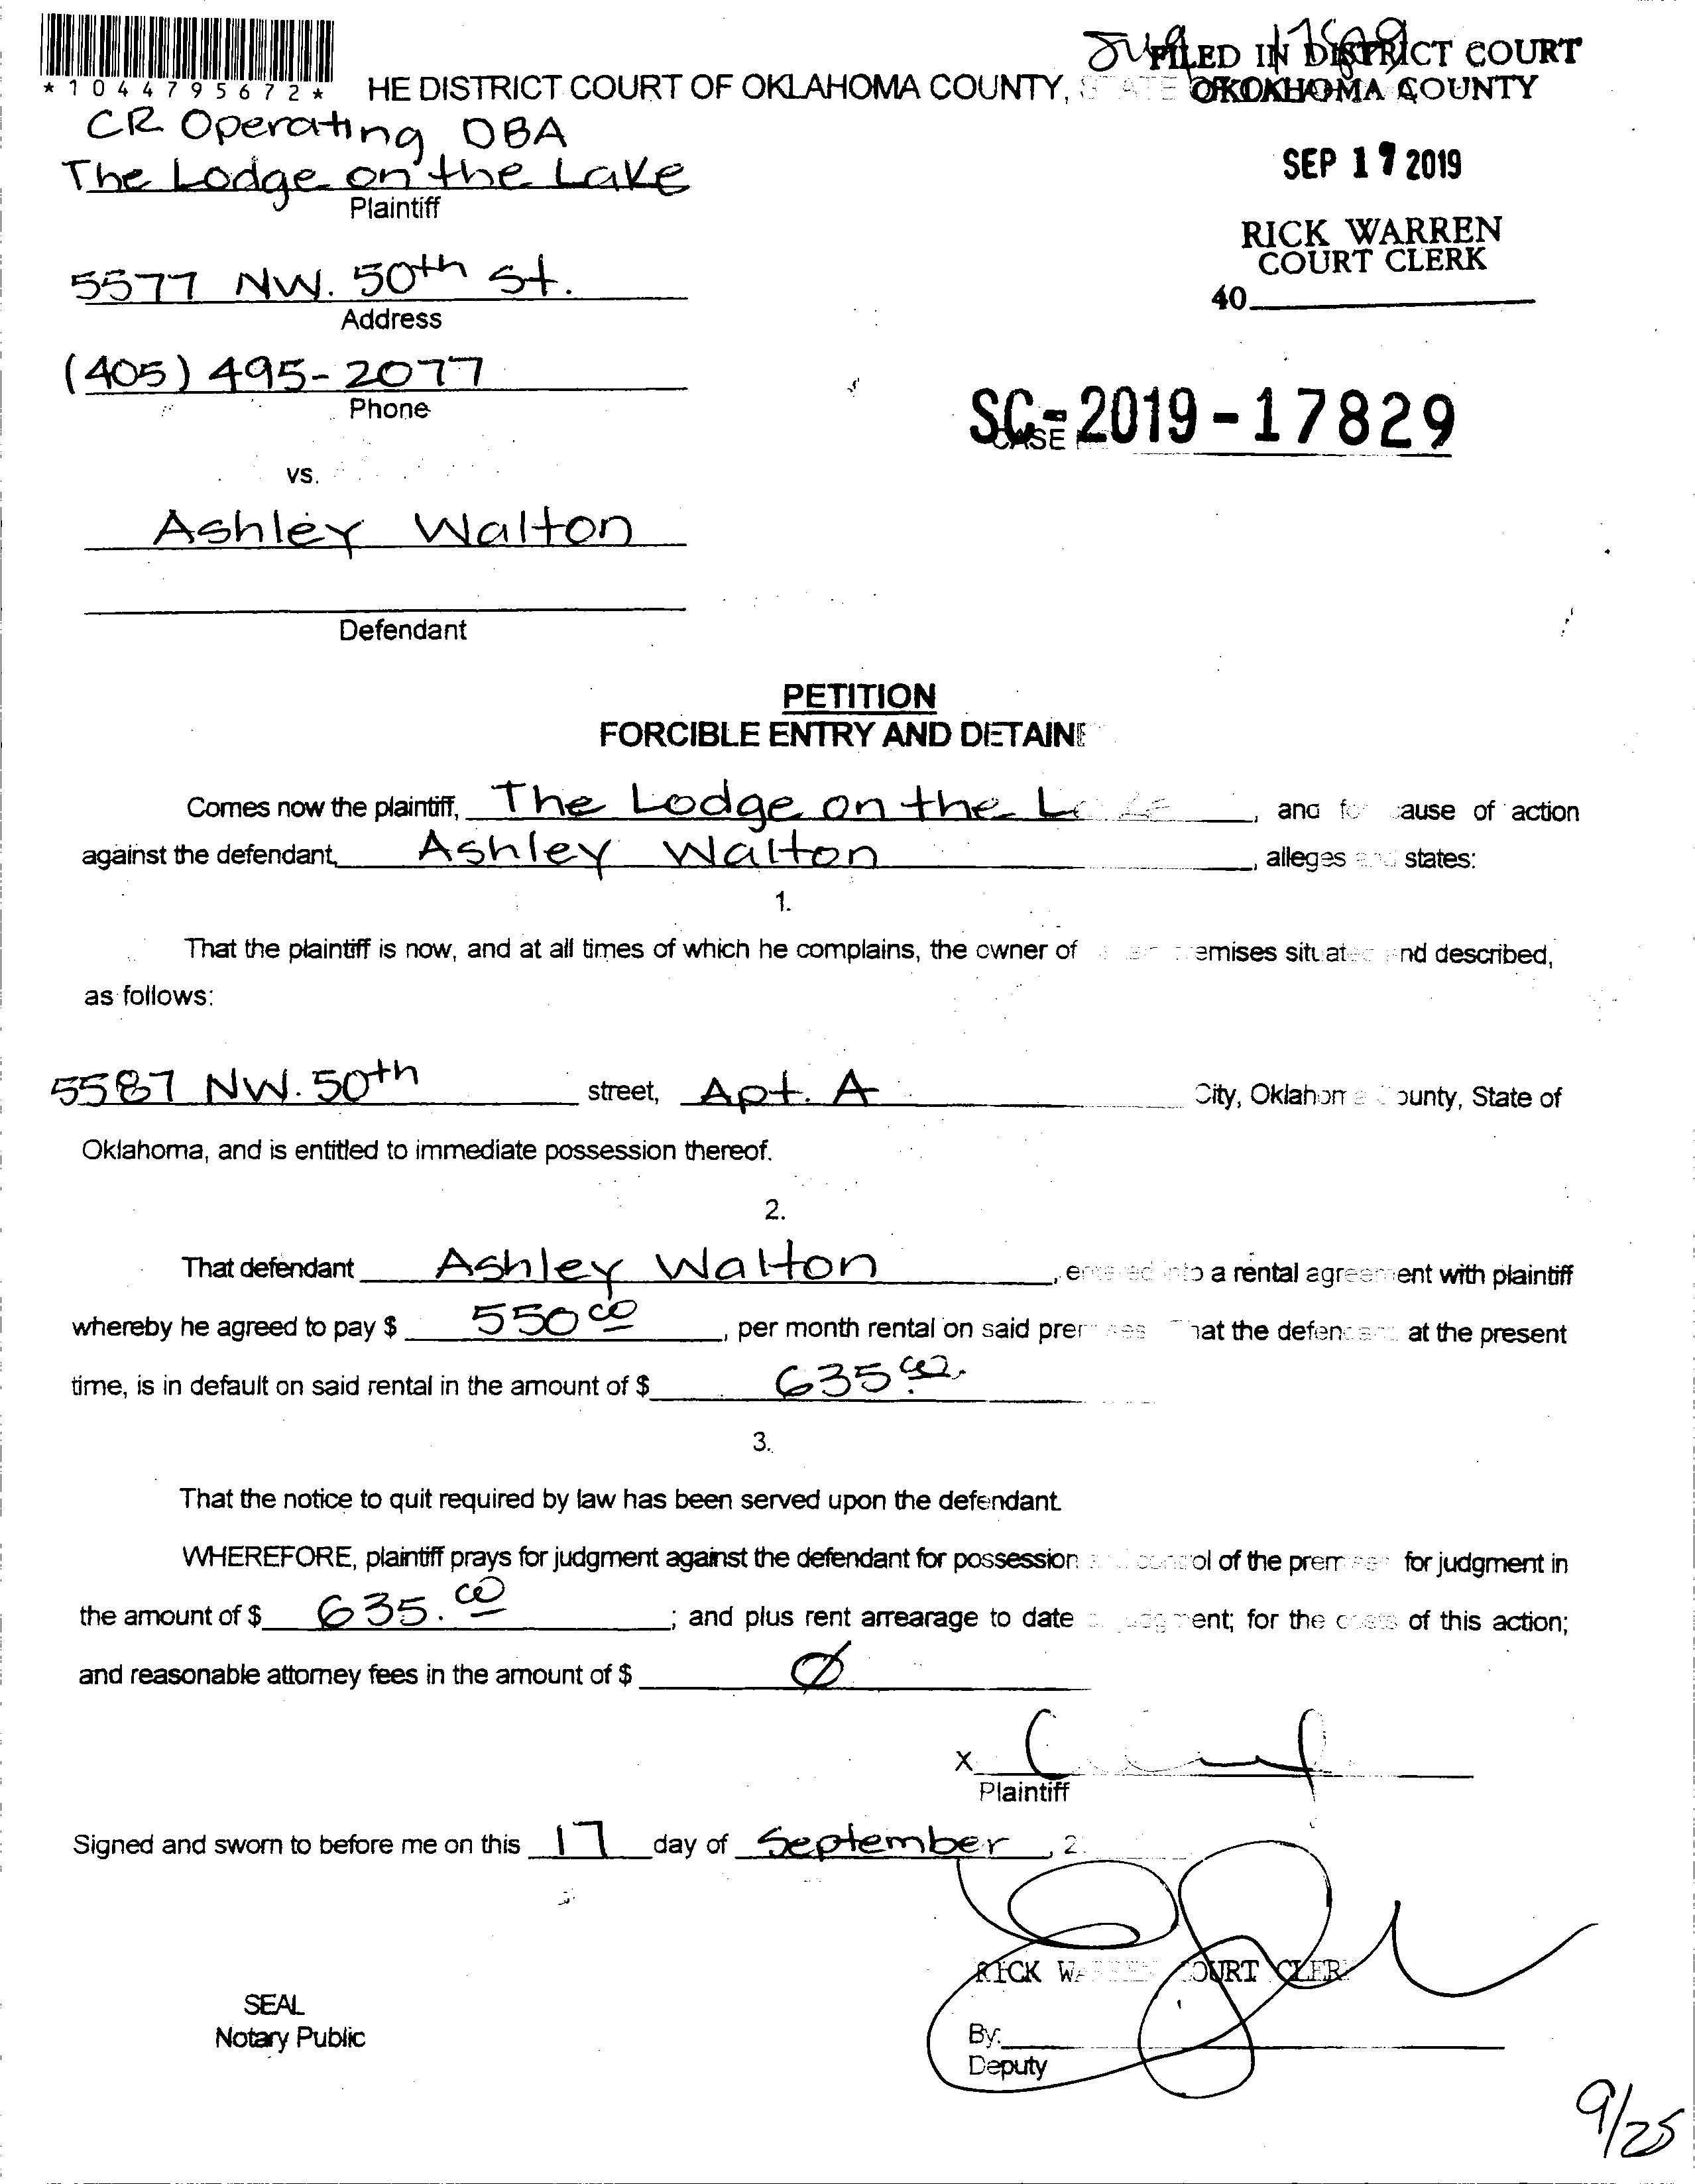 *1044795672*
HE DISTRICT COURT OF OKLAHOMA COUNTY, STATE OF OKLAHOMA
FILED IN DISTRICT COURT
OKLAHOMA COUNTY
CR Operating DBA
The Lodge on the Lake
Plaintiff
SEP 17 2019
RICK WARREN
COURT CLERK
40
5577 NW. 50th St.
Address
(405) 495-2077
Phone
SC-2019-17829
CASE
vs.
Ashley Walton
Defendant
PETITION
FORCIBLE ENTRY AND DETAINE
Comes now the plaintiff, The Lodge on the Lake, and for cause of action
against the defendant, Ashley Walton, alleges and states:
1.
That the plaintiff is now, and at all times of which he complains, the owner of emises situated and described,
as follows:
5587 NW. 50th street, Apt. A City, Oklahoma County, State of
Oklahoma, and is entitled to immediate possession thereof.
2.
That defendant Ashley Walton, entered into a rental agreement with plaintiff
whereby he agreed to pay $ 550 00, per month rental on said premises That the defendant at the present
time, is in default on said rental in the amount of $ 635 00.
3.
That the notice to quit required by law has been served upon the defendant.
WHEREFORE, plaintiff prays for judgment against the defendant for possession control of the premises for judgment in
the amount of $ 635. 00; and plus rent arrearage to date judgment; for the costs of this action;
and reasonable attorney fees in the amount of $ Ø
X
Plaintiff
Signed and sworn to before me on this 17 day of September, 2
RICK WARREN COURT CLER
SEAL
Notary Public
By:
Deputy
9/25